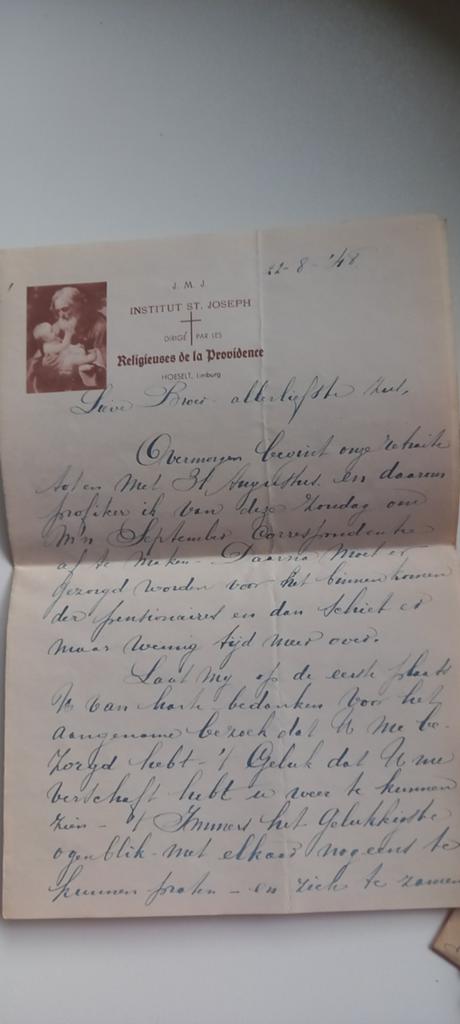 22-8-'48
J. M. J.
INSTITUT ST. JOSEPH
DIRIGÉ PAR LES
Religieuses de la Providence
HOESELT, Limburg
Lieve Broer allerliefste Zus,
Overmorgen begint onze retraite
tot en met 31 Augustus en daarom
profiteer ik van deze Zondag om
M'n September Correspondentie
af te maken - Daarna moet er
gezorgd worden voor het binnenkomen
der pensionaires en dan schiet er
maar weinig tijd meer over.
Laat my op de eerste plaats
U van harte bedanken voor het
aangename bezoek dat U me be-
zorgd hebt - 't Geluk dat U me
verschaft hebt u weer te kunnen
zien - 't Immers het gelukkigste
ogenblik met elkaar nog eens te
kunnen praten - en zich te zamen